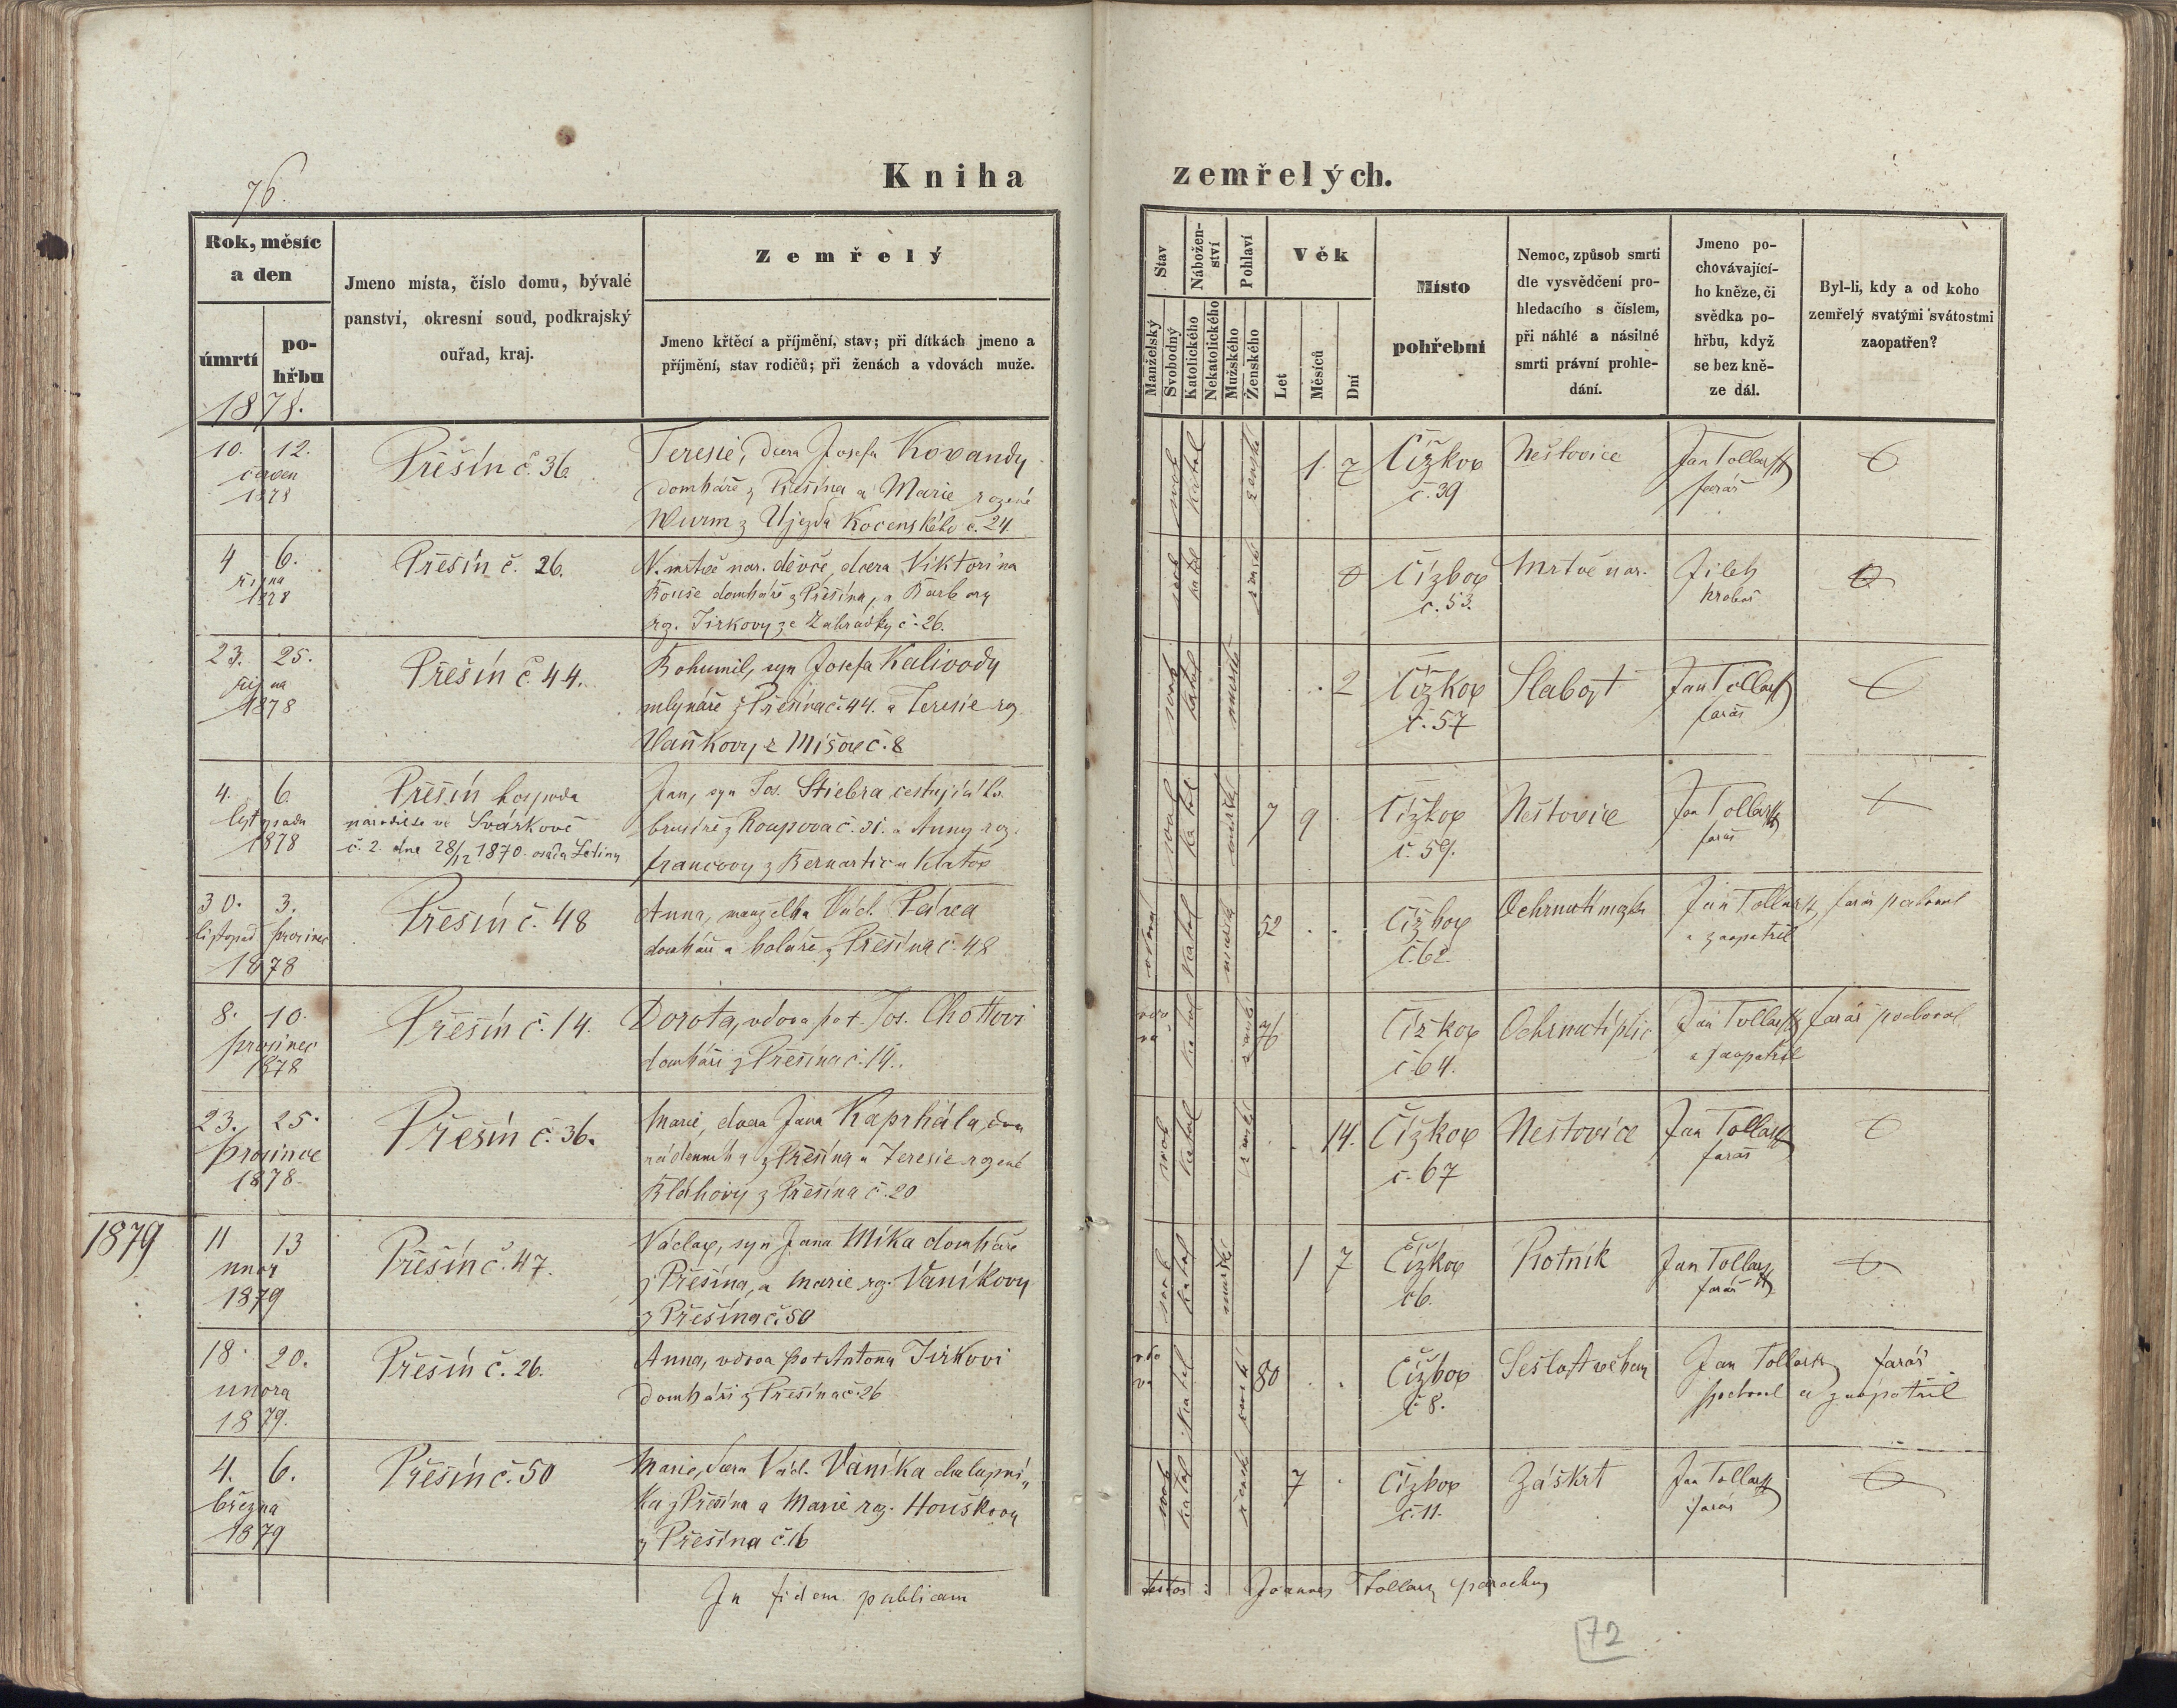 76.
Kniha zemřelých.
Rok, měsíc
a den
úmrtí
po-
hřbu
Jmeno místa, číslo domu, bývalé
panství, okresní soud, podkrajský
ouřad, kraj.
Zemřelý
Jmeno křtěcí a příjmění, stav; při dítkách jmeno a
příjmění, stav rodičů; při ženách a vdovách muže.
Stav
Manželský
Svobodný
Nábožen-
ství
Katolického
Nekatolického
Pohlaví
Mužského
Ženského
Věk
Let
Měsíců
Dní
Místo
pohřební
Nemoc, způsob smrti
dle vysvědčení pro-
hledacího s číslem,
při náhlé a násilné
smrti právní prohle-
dání.
Jmeno po-
chovávající-
ho kněze, či
svědka po-
hřbu, když
se bez kně-
ze dál.
Byl-li, kdy a od koho
zemřelý svatými svátostmi
zaopatřen?
1878.
10. 12.
červen
1878
Přešín č. 36.
Teresie, dcera Josefa Kovandy
domkáře z Přešína a Marie rozené
Wurm z Újezda Kocenského č. 24.
svob
katol
ženské
1. 7
Čížkov
č. 39
Neštovice
Jan Tollar
farář
4 6.
října
1878
Přešín č. 26.
N. mrtvě nar. děvče, dcera Viktorina
Bouše domkáře z Přešína, a Barbory
rz. Jirkovy ze Zahrádky č. 26.
svob
katol
0
Čížkov
č. 53.
Mrtvě nar.
Jílek
hrobař
23. 25.
října
1878
Přešín č. 44.
Bohumil, syn Josefa Kalivody
mlynáře z Přešína č. 44. a Teresie rz.
Vaňkovy z Míšov č. 8
svob
katol
mužské
2
Čížkov
č. 57
Slabost
Jan Tollar
farář
4. 6.
listopadu
1878
Přešín hospoda
narodil se ve Svárkově
č. 2. dne 28/12 1870. osada Letiny
Jan, syn Jos. Stiebra cestujícího
brusiče z Roupova č. 31. a Anny roz.
Francovy z Bernartic u Klatov
svob
katol
mužské
7 9
Čížkov
č. 59.
Neštovice
Jan Tollar
farář
30. 3.
listopad prosinec
1878
Přešín č. 48
Anna, manželka Václ. Páva
domkáře a koláře z Přešína č. 48
katol
52
Čížkov
č. 62
Ochrnutí mozku
Jan Tollar, farář pochoval
a zaopatřil
8. 10.
prosinec
1878
Přešín č. 14.
Dorota, vdova po + Jos. Chottovi
domkáři z Přešína č. 14.
vdo
va
katol
76
Čížkov
č. 64.
Ochrnutí plic
Jan Tollar farář pochoval
a zaopatřil
23. 25.
prosince
1878
Přešín č. 36.
Marie, dcera Jana Kaprhála,
nádenníka z Přešína a Teresie rozené
Bláhovy z Přešína č. 20
svob
katol
14.
Čížkov
č. 67
Neštovice
Jan Tollar
farář
1879
11 13
únor
1879
Přešín č. 47.
Václav, syn Jana Míka domkáře
z Přešína, a Marie rz. Vaníkovy
z Přešína č. 50
svob
katol
mužské
1 7
Čížkov
č 6.
Psotník
Jan Tollar
farář
18. 20.
února
1879.
Přešín č. 26.
Anna, vdova po + Antonu Jirkovi
domkáři z Přešína č. 26
vdo
va
katol
ženské
80
Čížkov
č 8.
Sešlost věkem
Jan Tollar farář
pochoval a zaopatřil
4. 6.
března
1879
Přešín č. 50
Marie, dcera Václ. Vaníka chalupní„
ka z Přešína a Marie rz. Houškovy
z Přešína č. 16
svob
katol
ženské
7
Čížkov
č. 11.
Záškrt
Jan Tollar
farář
In fidem publicam
testor: Joannes Tollar parochus
72